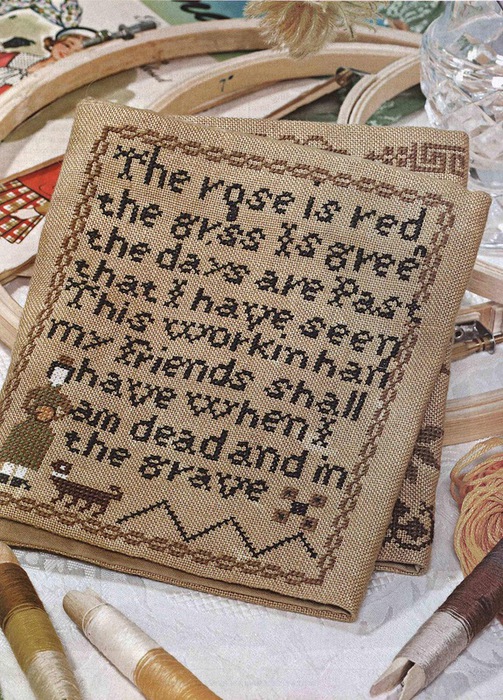 The rose is red
the grss Is green
the days are Past
that I have seen
This workin han
my friends shall
have when I
am dead and in
the grave
7"